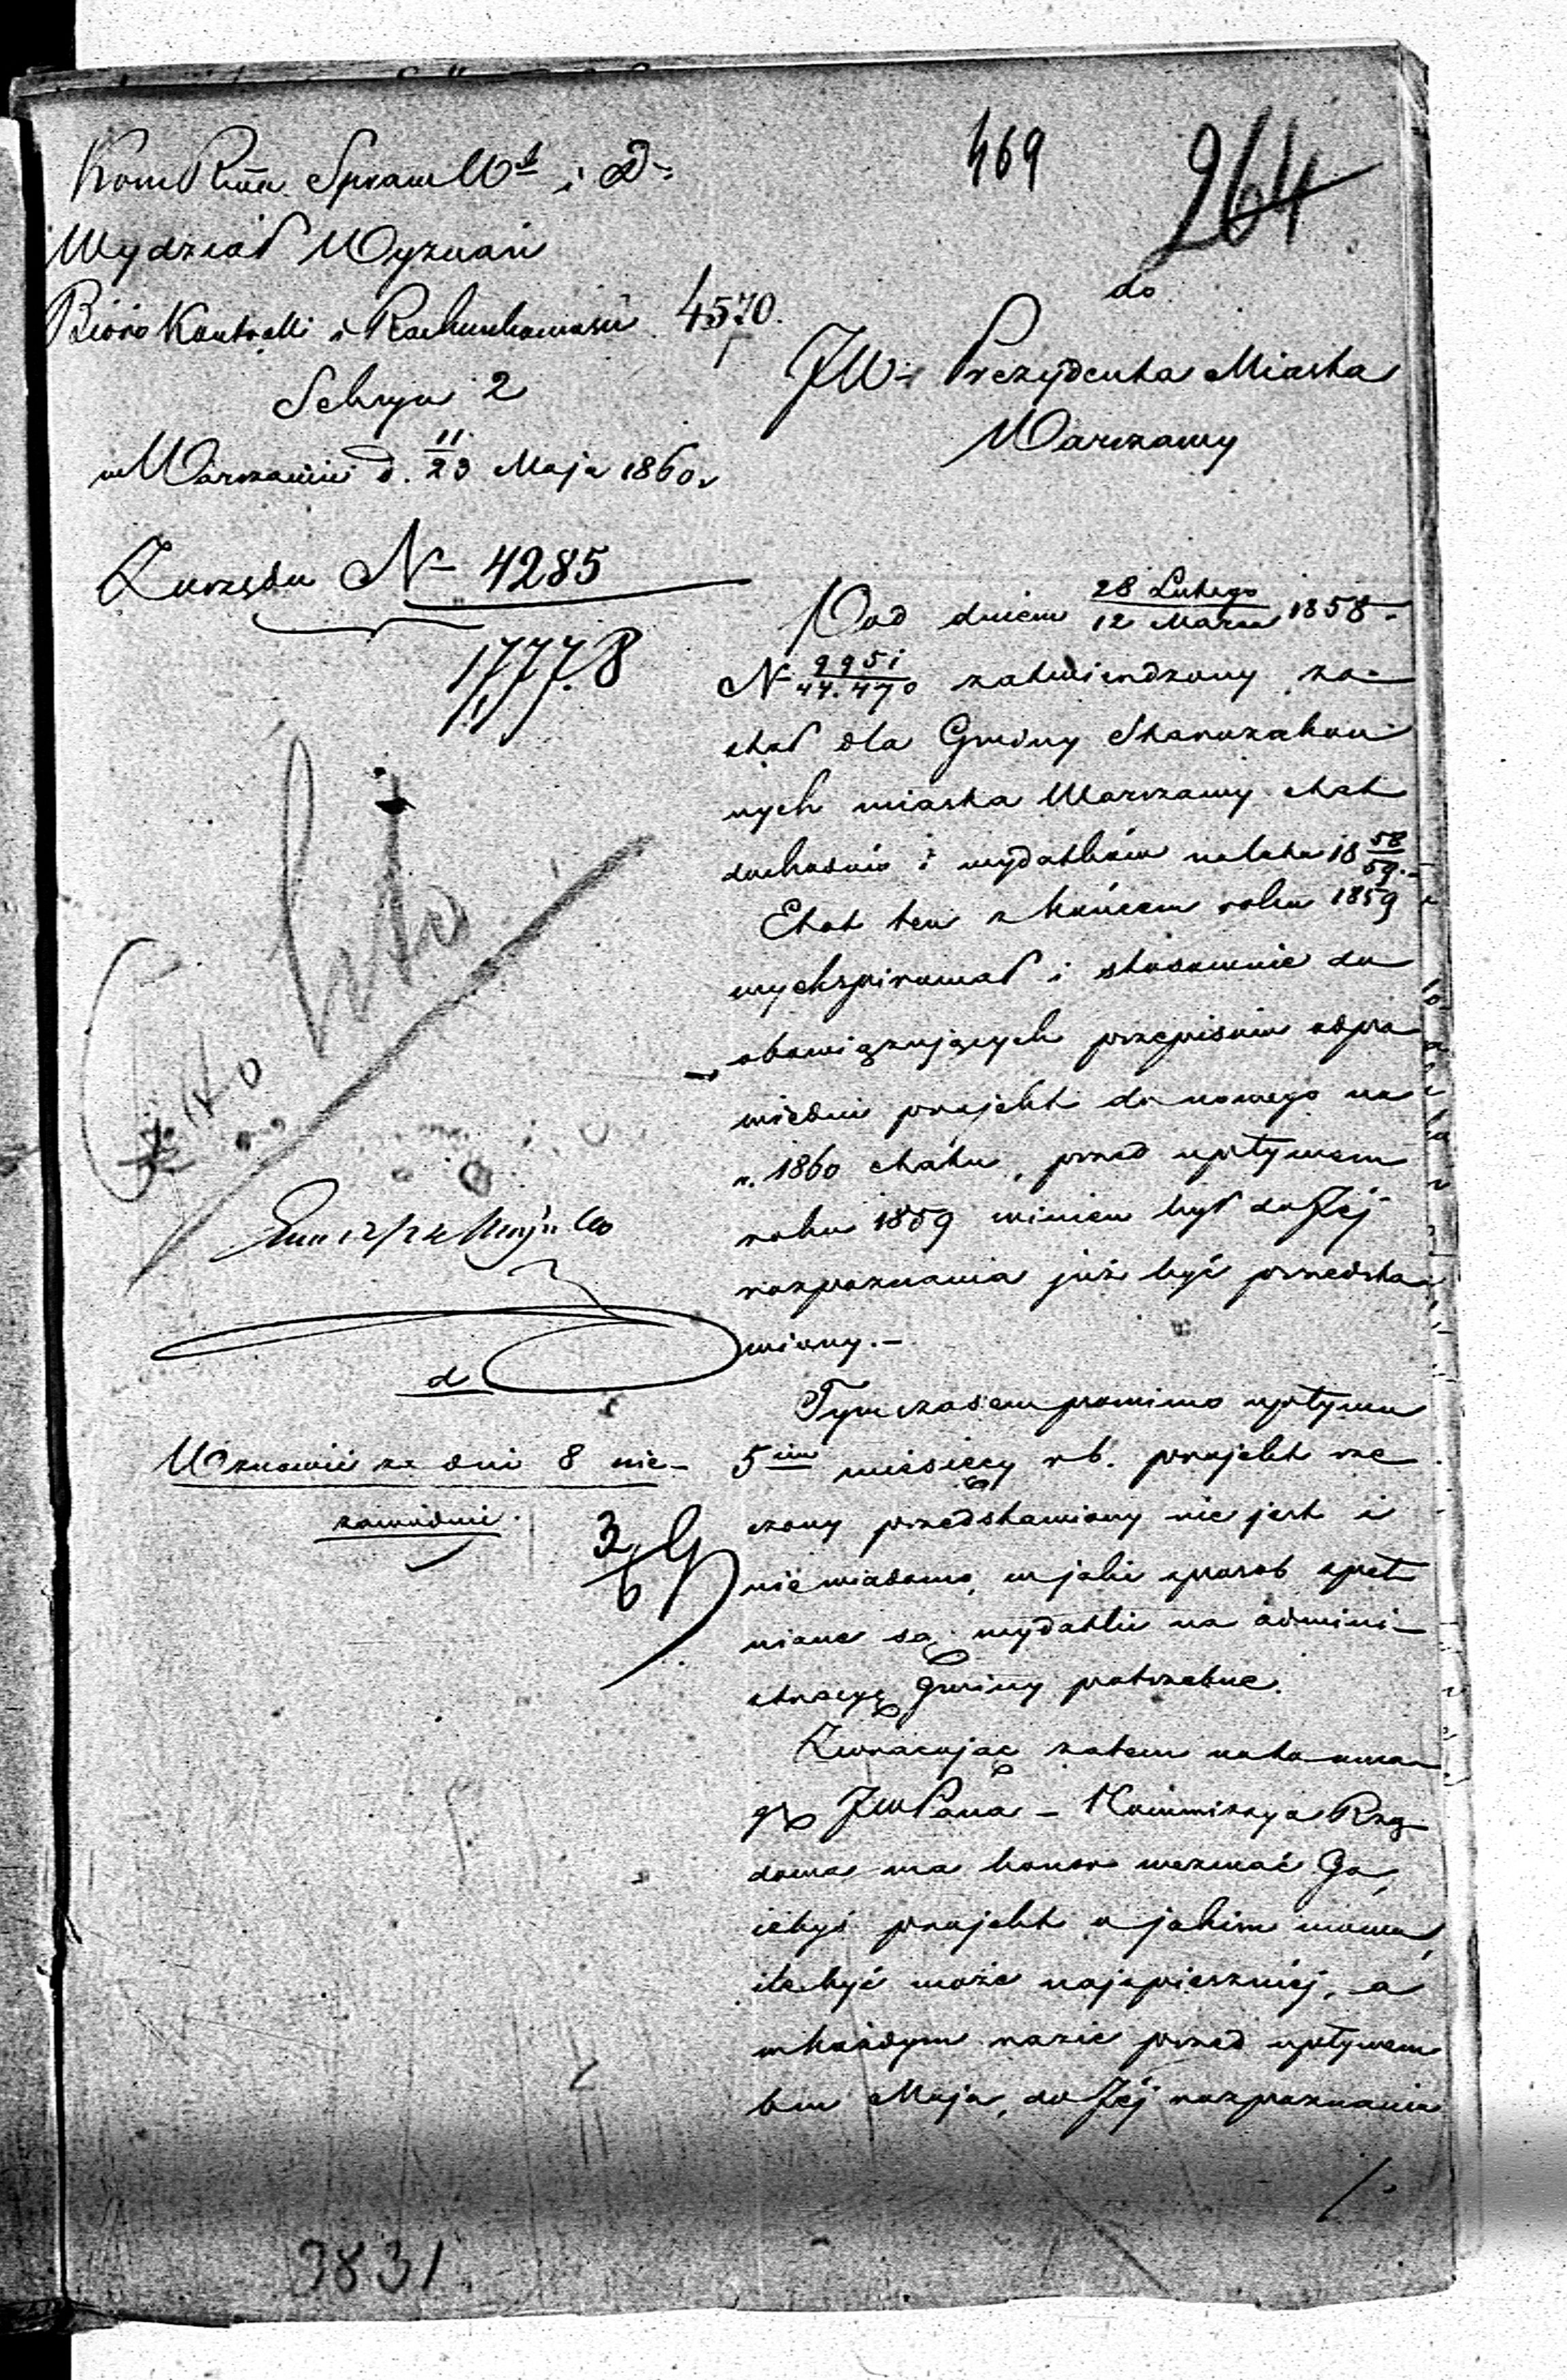 469
264
Kom Rzą. Spraw Wch i D.
Wydział Wyznań
Bióro Kontrolli i Rachunkowości 4570.
Sekcya 2
w Warszawie d. 11/23 Maja 1860 r
Z urzędu N 4285
1777.8
do
JW. Prezydenta Miasta
Warszawy
Pod dniem 28 Lutego/12 Marca 1858
N 9951/44.470 zatwierdzony zo-
stał dla Gminy Starozakon
nych miasta Warszawy etat
dochodów i wydatków na lata 18 58/59.
Etat ten z końcem roku 1859
wyekspirował i stosownie do
obowiązujących przepisów odpo
wiedni projekt do nowego na
r. 1860 etatu, przed upływem
roku 1859 winien był do Jéj
rozpoznania już być przedsta
wiony.-
Tymczasem pomimo upływu
5ciu miesięcy rb. projekt rze
czony przedstawiony nie jest i
niewiadomo, w jaki sposób speł
niane są wydatki na admini-
stracyę Gminy potrzebne.
Zwracając zatem na to uwa-
gę JWPana - Kommissya Rzą-
dowa ma honor wezwać Go,
iżbyś projekt o jakim mowa,
ile być może najspieszniej, a
w każdym razie przed upływem
bm Maja, do Jéj rozpoznania
Dnia 12/24 Maja 860
d
Wznowić za dni 8 nie-
zawodnie.
3/6
3831